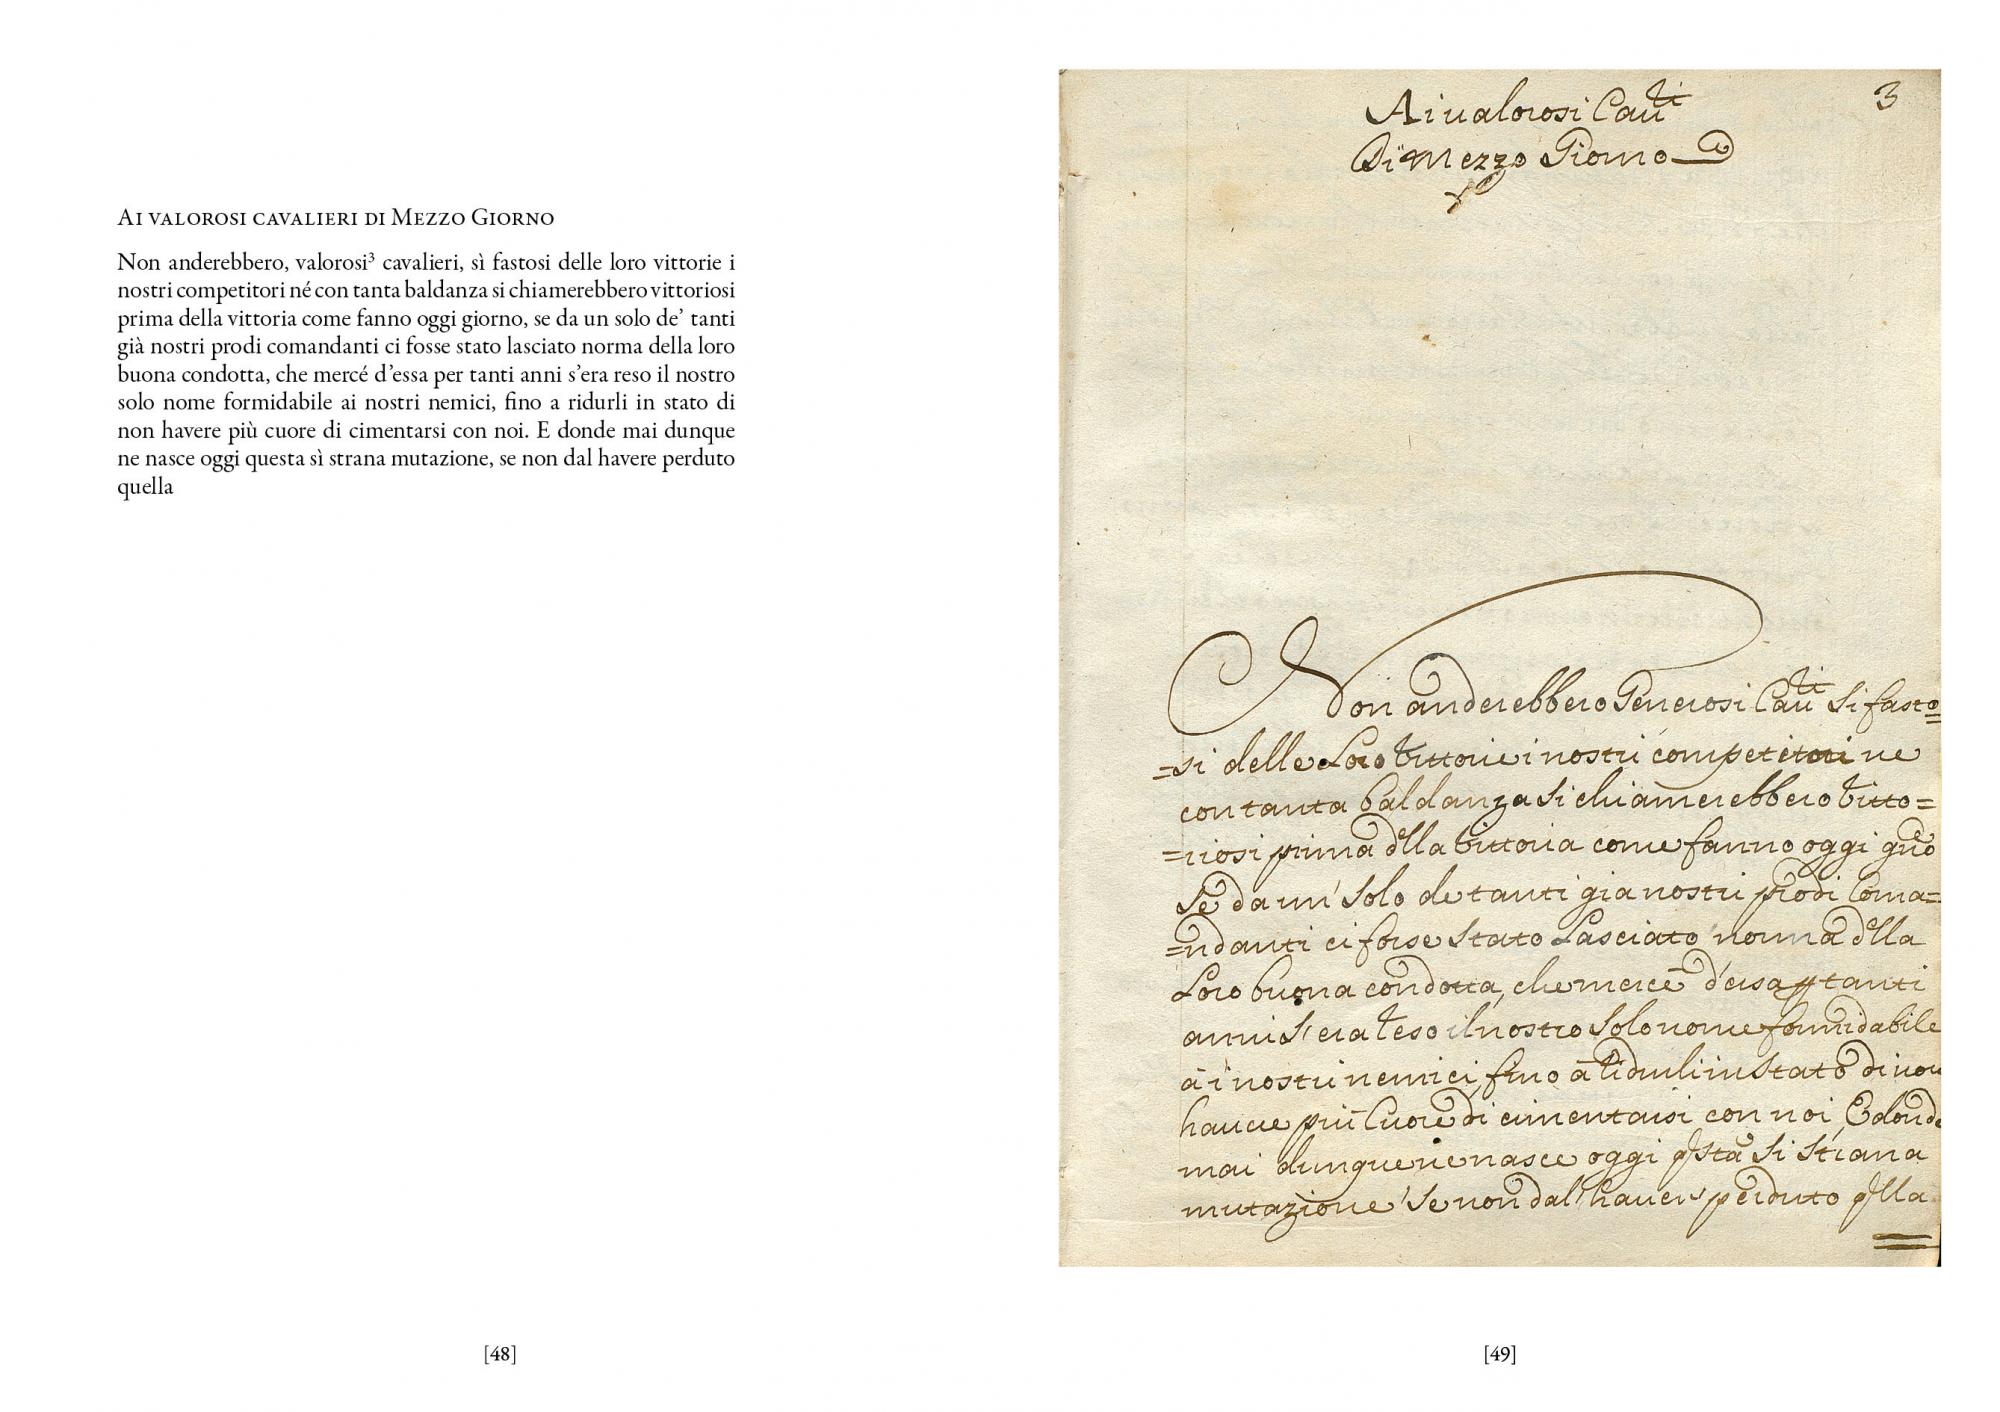 Ai valorosi cavalieri di Mezzo Giorno
Non anderebbero, valorosi³ cavalieri, sì fastosi delle loro vittorie i
nostri competitori né con tanta baldanza si chiamerebbero vittoriosi
prima della vittoria come fanno oggi giorno, se da un solo de’ tanti
già nostri prodi comandanti ci fosse stato lasciato norma della loro
buona condotta, che mercé d’essa per tanti anni s’era reso il nostro
solo nome formidabile ai nostri nemici, fino a ridurli in stato di
non havere più cuore di cimentarsi con noi. E donde mai dunque
ne nasce oggi questa sì strana mutazione, se non dal havere perduto
quella
[48]
3
Ai valorosi Cavri
Di Mezzo Giorno
Non anderebbero Generosi Cavri si fasto=
=si delle Loro Vittorie i nostri competitori ne
con tanta baldanza si chiamerebbero Vitto=
=riosi prima dlla Vittoria come fanno oggi gno
Se da un' solo de tanti gia nostri prodi Coma=
=ndanti ci fosse stato Lasciato norma dlla
Loro buona condotta, che mercè d'essa p tanti
anni s'era reso il nostro solo nome formidabile
a i nostri nemici, fino à ridurli in stato di non
havere più Cuore di cimentarsi con noi, E donde
mai dunque ne nasce oggi qsta si strana
mutazione se non dal' haver perduto qlla
[49]